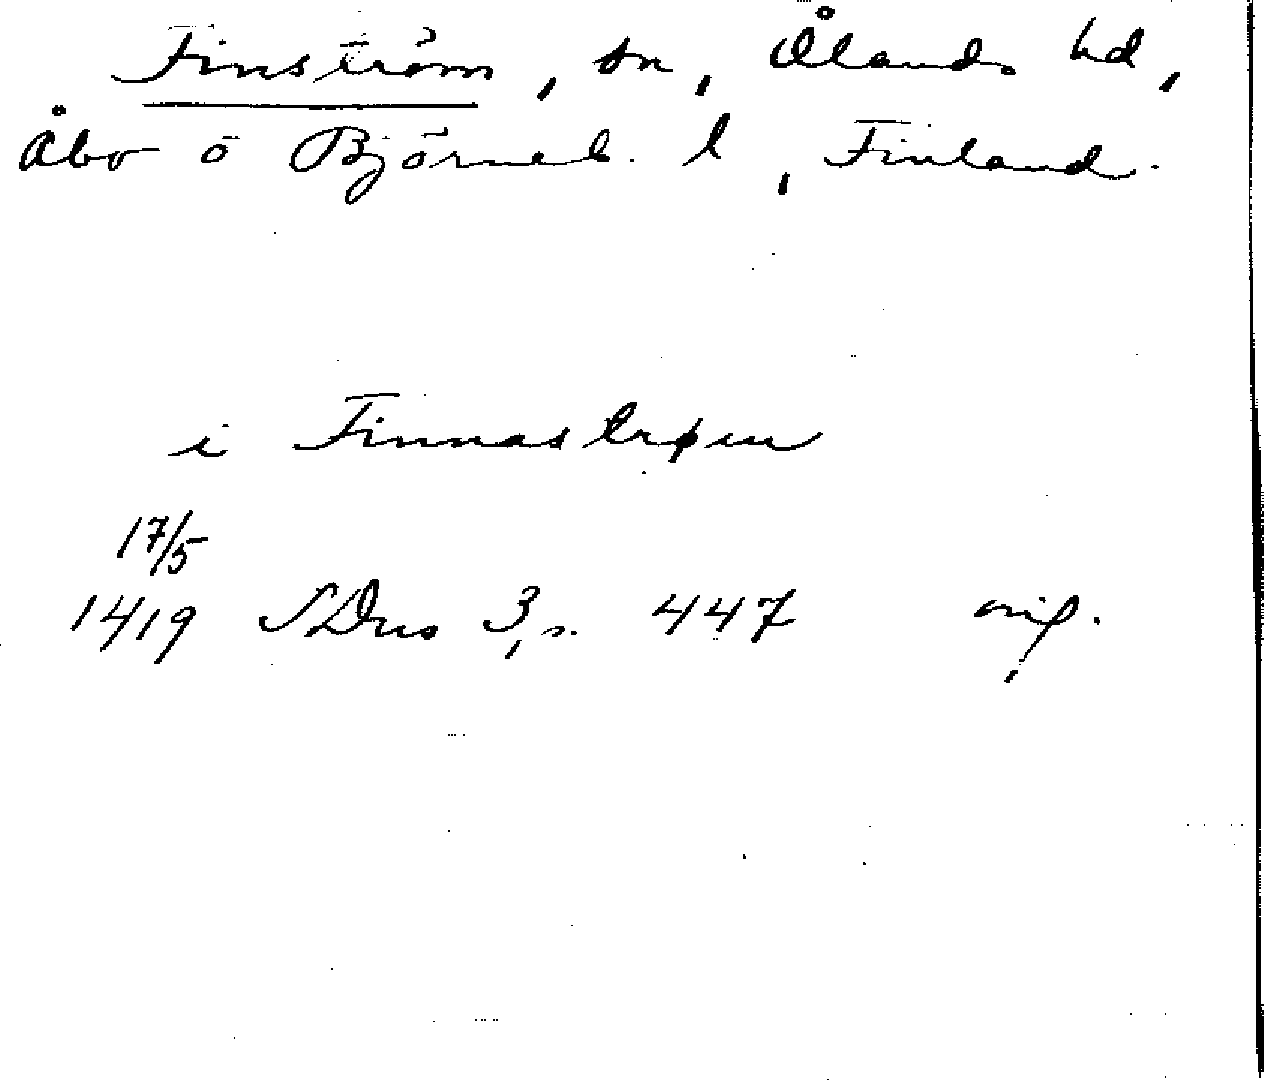 Finström, sn, Ålands hd,
Åbo o Björneb. l, Finland.
i Finnastrøm
17/5
1419 SDns 3, s. 447 orig.